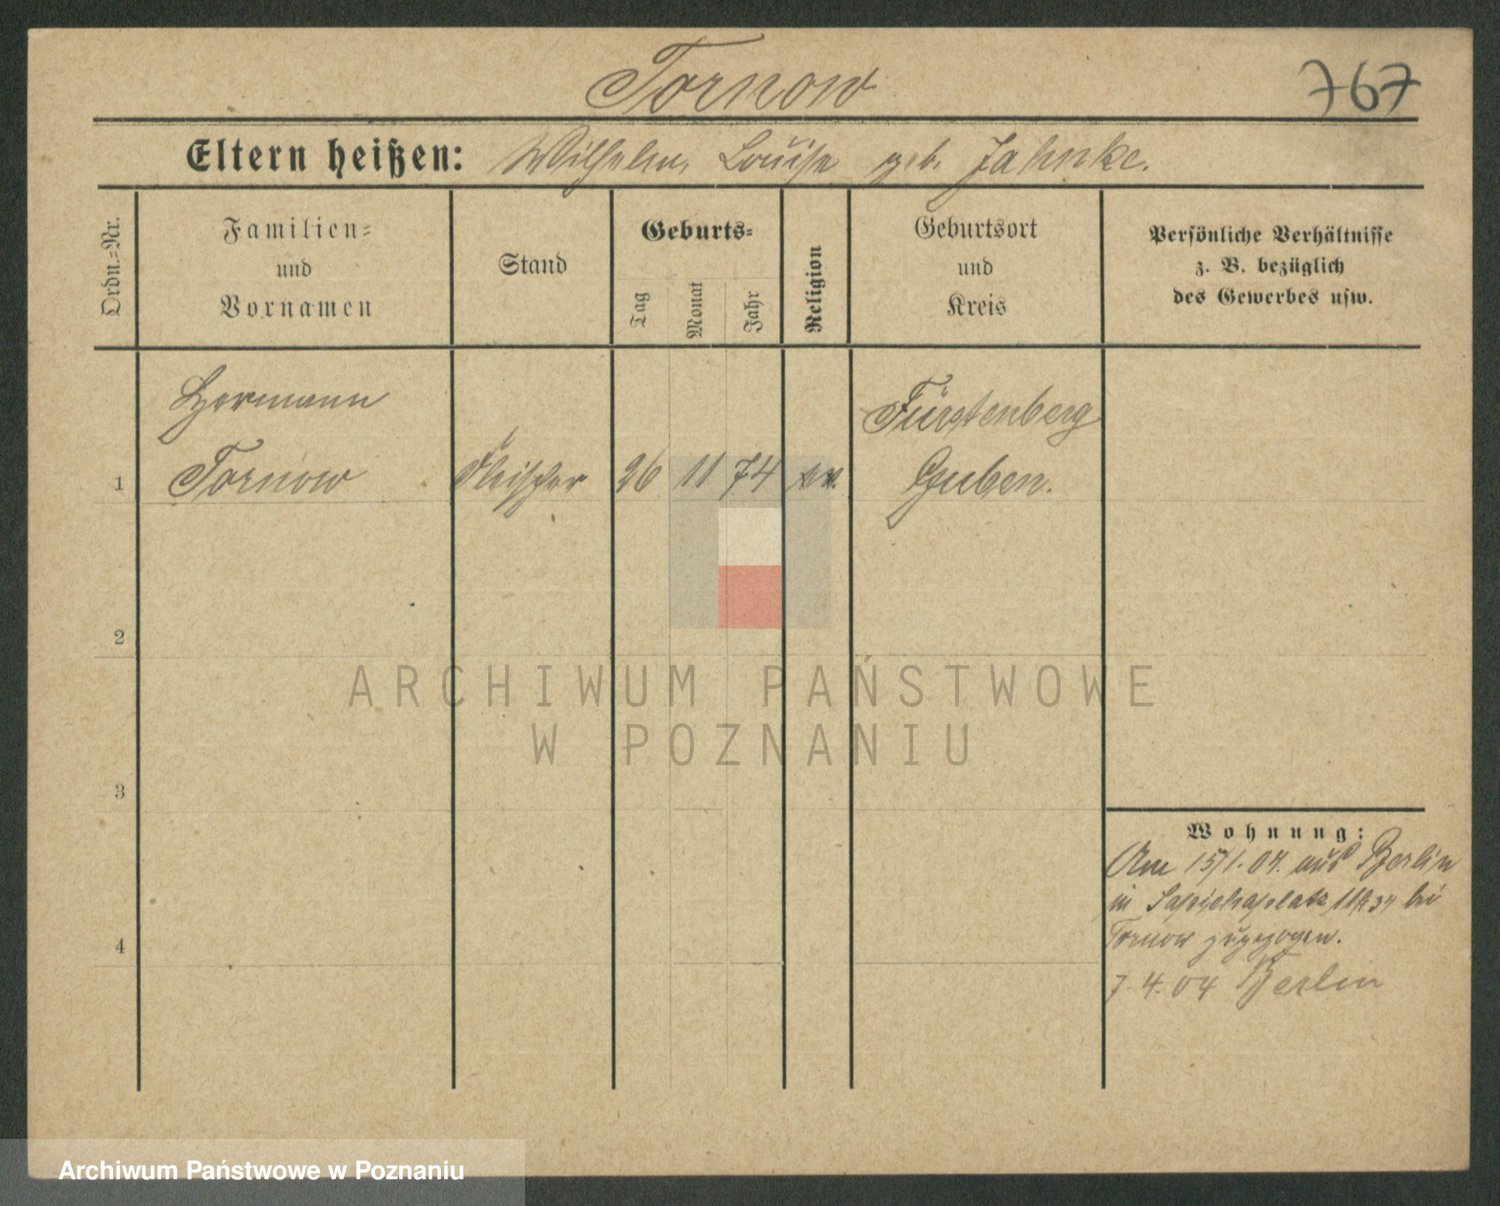 Tornow
767
Eltern heißen: Wilhelm, Louise geb. Jahnke.
Ordn.-Nr.
Familien-
und
Vornamen
Stand
Geburts-
Tag
Monat
Jahr
Religion
Geburtsort
und
Kreis
Persönliche Verhältnisse
z. B. bezüglich
des Gewerbes usw.
Hermann
Fürstenberg
1 Tornow Fleischer 26 11 74 ev. Guben.
2
ARCHIWUM PAŃSTWOWE
W POZNANIU
3
Wohnung:
Am 15/1.04. aus Berlin
in Sapiehaplatz bei
4
Tornow zugezogen.
7.4.04 Berlin
Archiwum Państwowe w Poznaniu